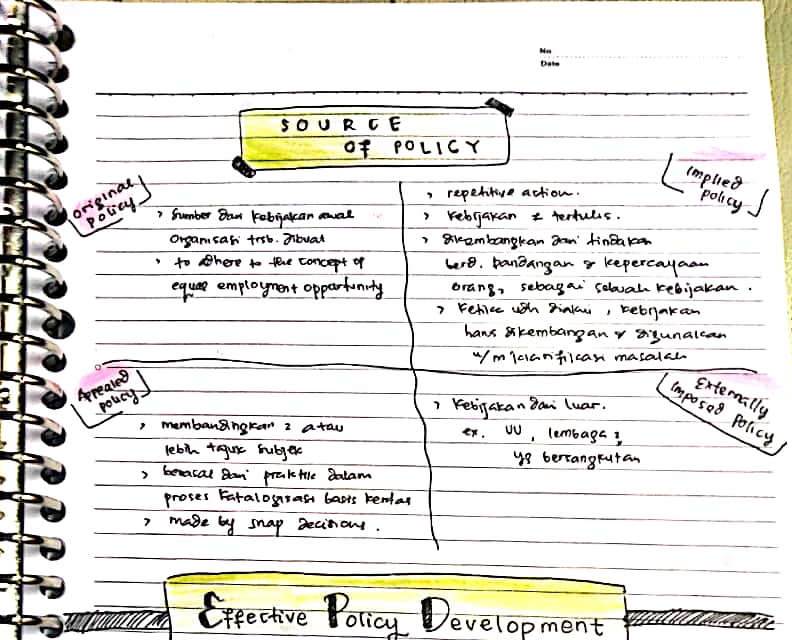 No
Date
SOURCE
OF POLICY
Original
Policy
> Sumber dari kebijakan awal
organisasi trsb. dibuat
> to adhere to the concept of
equal employment opportunity
Implied
Policy
> repetitive action.
> Kebijakan tertulis.
> dikembangkan dari tindakan
berd. pandangan & kepercayaan
orang, sebagai sebuah kebijakan.
> Ketika udh diakui, kebijakan
harus dikembangan & digunakan
u/ m'klarifikasi masalah
Appealed
Policy
> membandingkan 2 atau
lebih tajuk subjek
> berasal dari praktik dalam
proses Katalogisasi basis kertas
> made by snap decisions.
Externally
Imposed Policy
> Kebijakan dari luar.
ex. UU, lembaga2
yg bersangkutan
Effective Policy Development